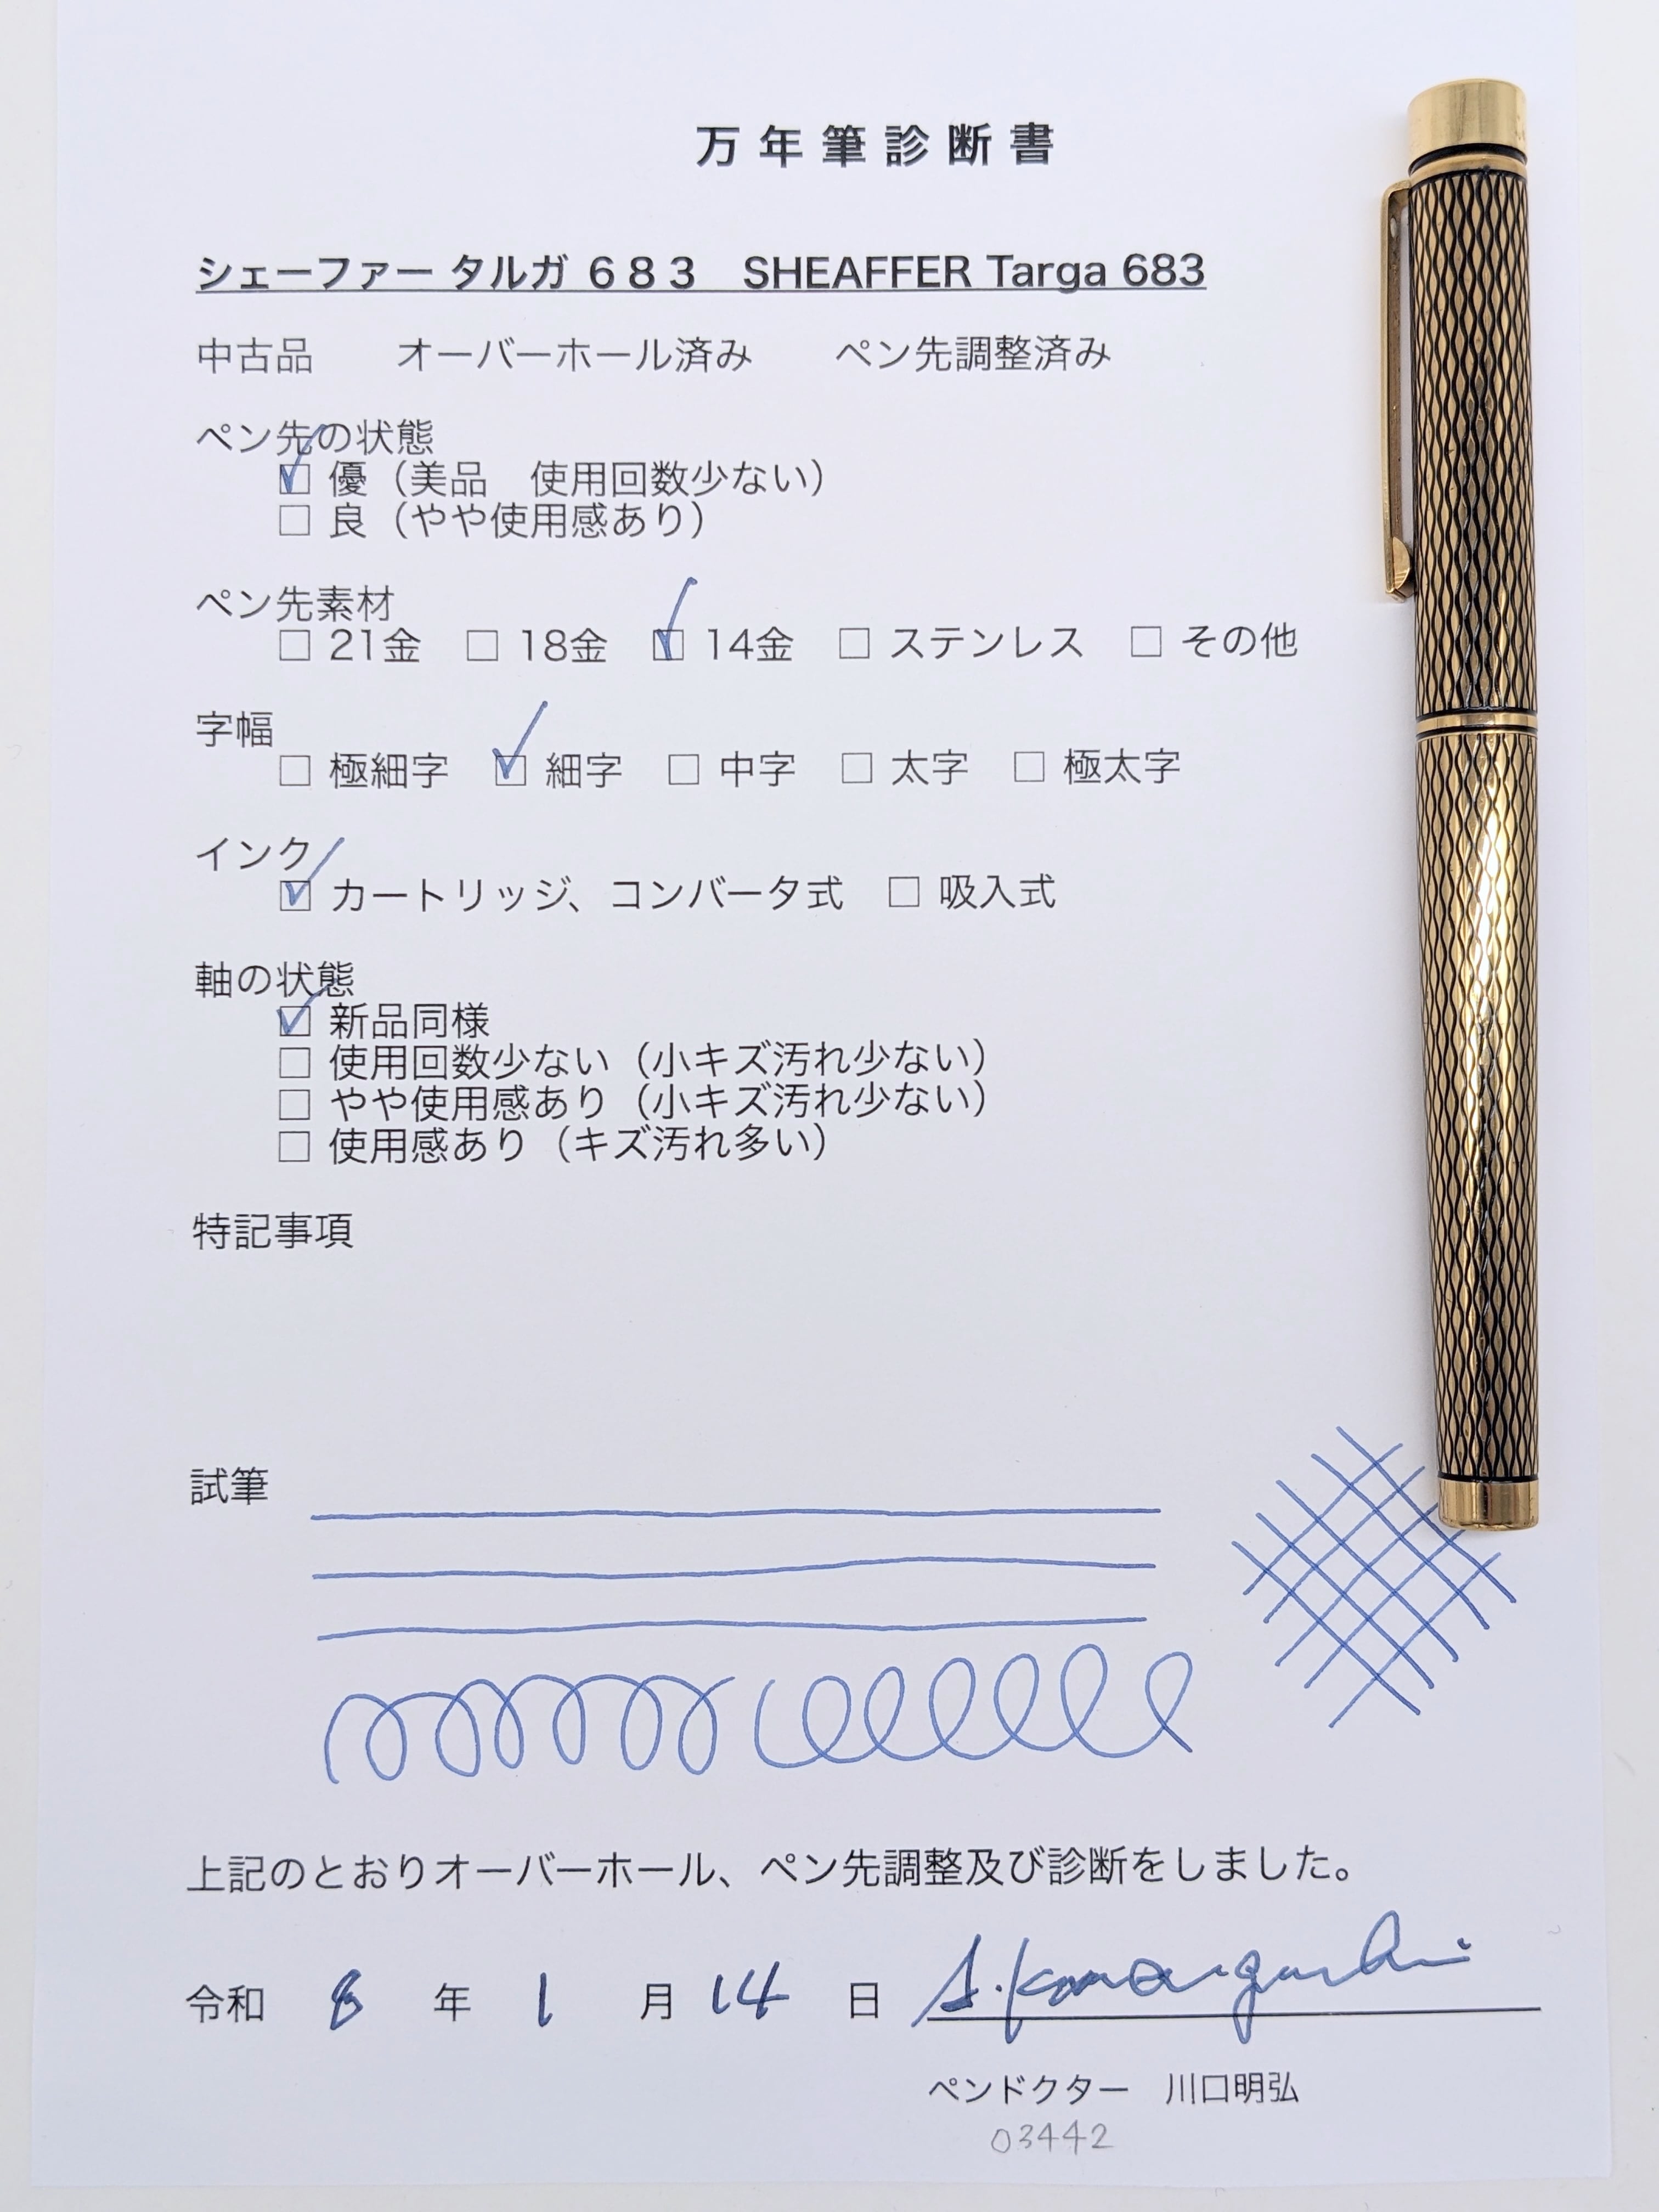 万年筆診断書
シェーファー タルガ 683　SHEAFFER Targa 683
中古品　　オーバーホール済み　　ペン先調整済み
ペン先の状態
☑ 優（美品　使用回数少ない）
□ 良（やや使用感あり）
ペン先素材
□ 21金　□ 18金　☑ 14金　□ ステンレス　□ その他
字幅
□ 極細字　☑ 細字　□ 中字　□ 太字　□ 極太字
インク
☑ カートリッジ、コンバータ式　□ 吸入式
軸の状態
☑ 新品同様
□ 使用回数少ない（小キズ汚れ少ない）
□ やや使用感あり（小キズ汚れ少ない）
□ 使用感あり（キズ汚れ多い）
特記事項
試筆
上記のとおりオーバーホール、ペン先調整及び診断をしました。
令和　8　年　1　月　14　日　A. Kawaguchi
ペンドクター　川口明弘
03442